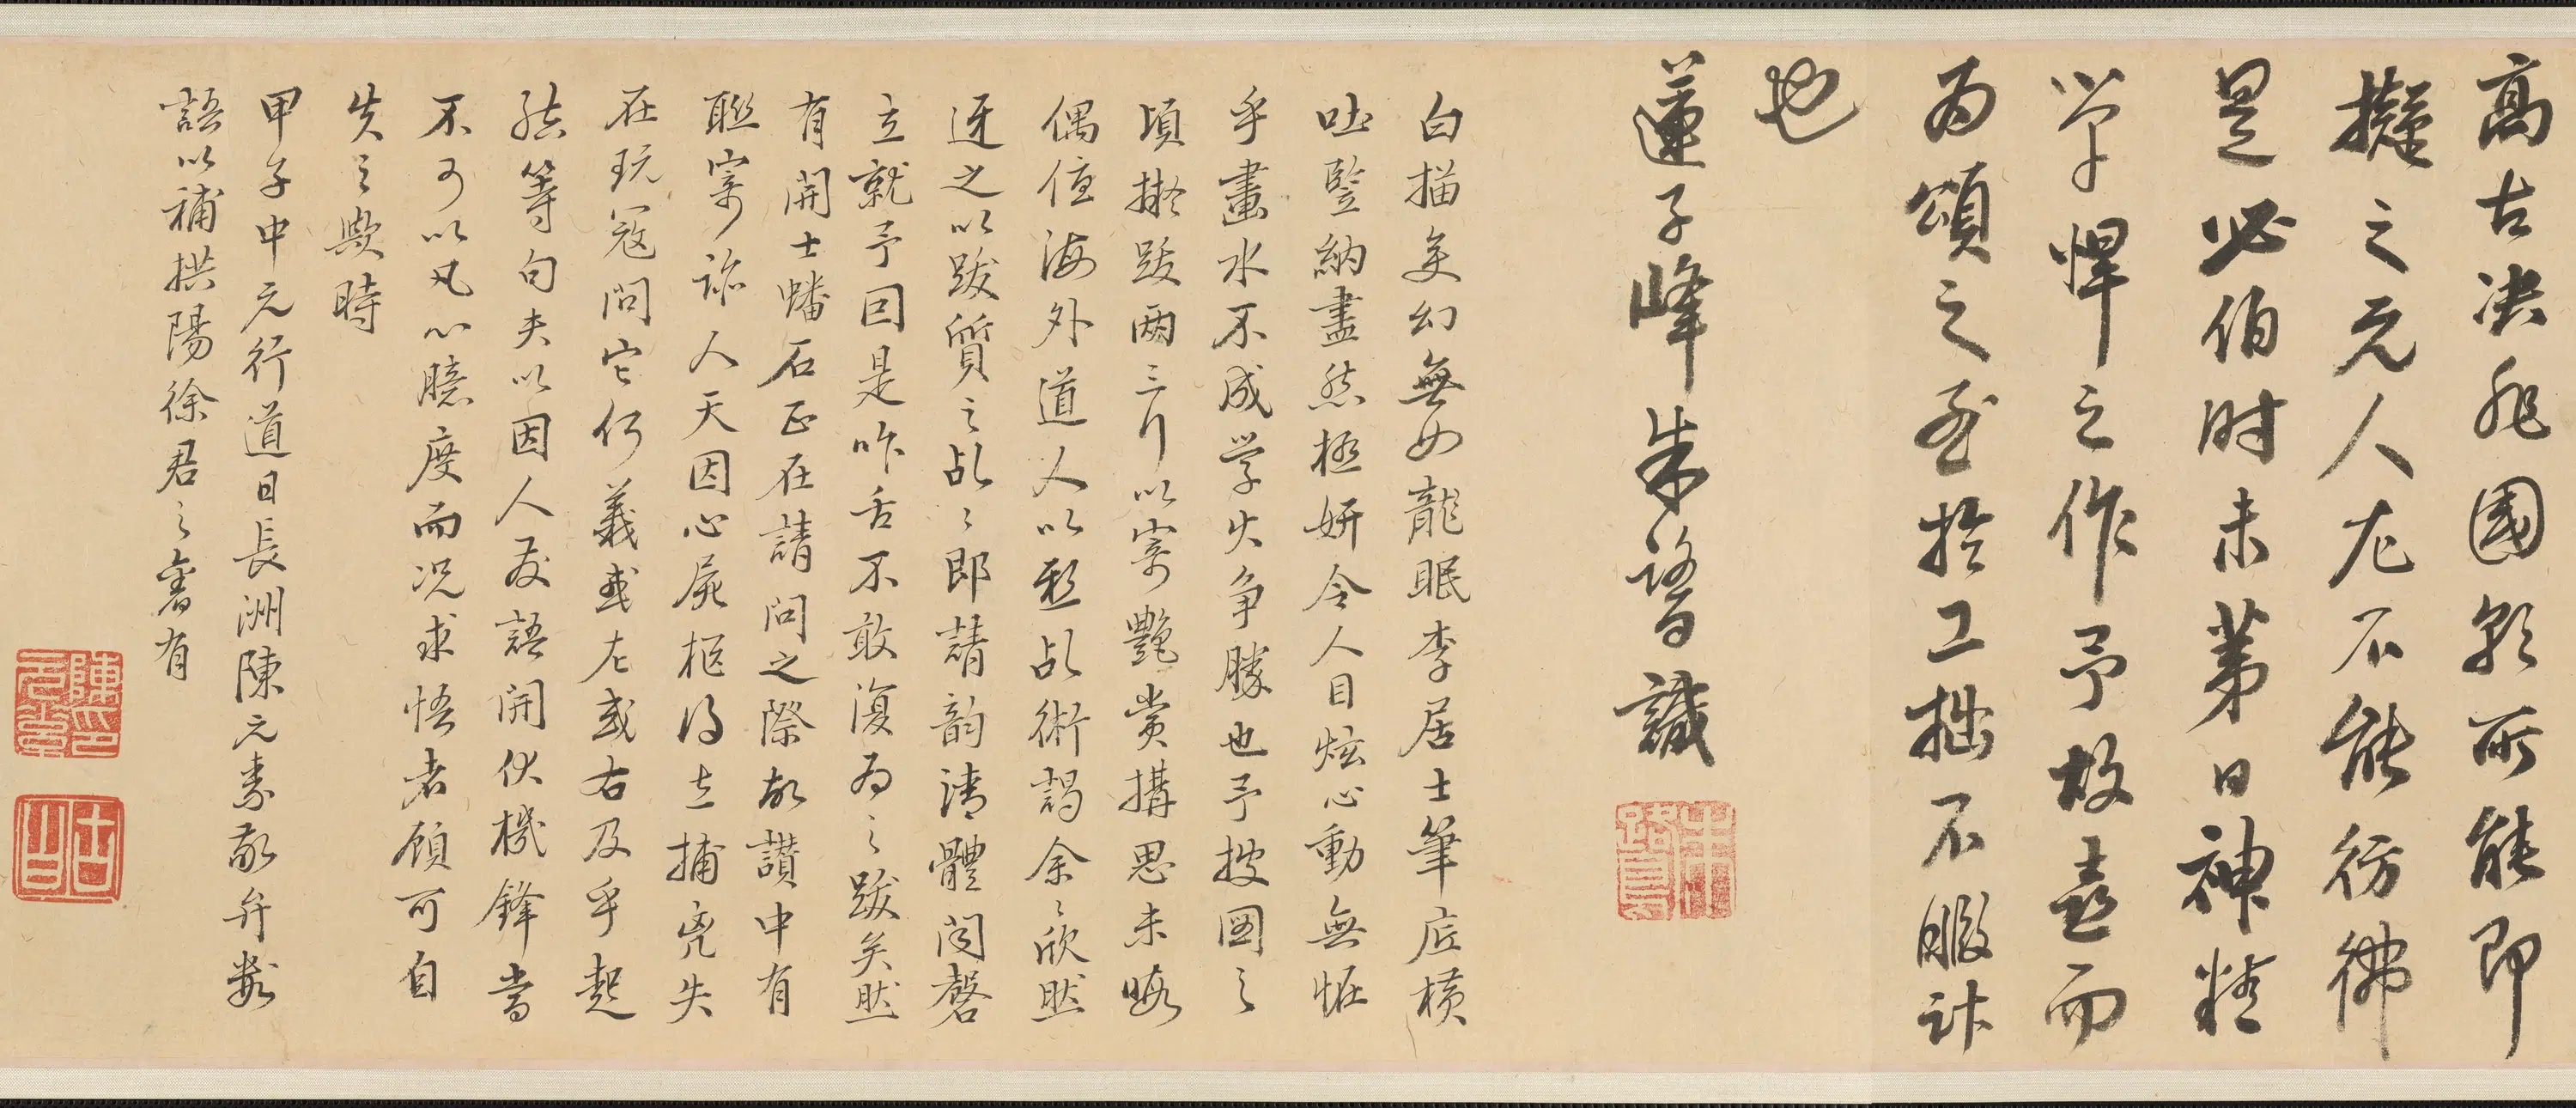 高古決非國朝所能即
擬之元人尤不能彷彿
是必伯時未第日神精
心手悍之作予故喜而
為頌之至於工拙不暇計
也
蓮子峰朱鷺識
白描變幻無如龍眠李居士筆底橫
吐豎納盡態極妍令人目炫心動無怪
乎畫水不成學火爭勝也予披圖之
頃擬跋兩三行以寄艷賞搆思未晦
偶值海外道人以亂術謁余〻欣然
迓之以跋質之乩〻即請韵清體閟磬
立就予因是咋舌不敢復為之跋矣然
有開士蟠石正在請問之際故讚中有
聊寄諭人天因心屍柩得之捕兔失
在玩寇問它何義或左或右及乎起
然等句夫以因人發語開伏機鋒當
不可以凡心臆度而況求悟者顧可自
失之歟時
甲子中元行道日長洲陳元素敬弁數
語以補拱陽徐君之舊有
陳印元素